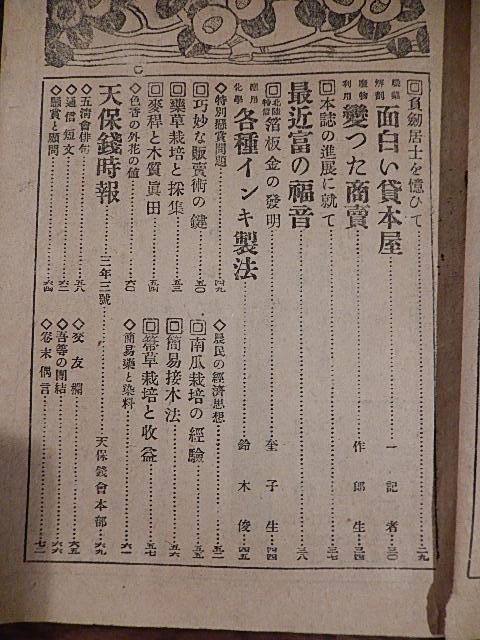 回負劒居士を憶ひて……二九
職業解剖 面白い貸本屋……一記者……三〇
廢物利用 變つた商賣……作郎生……三四
回本誌の進展に就て……三七
最近富の福音……三八
回北陸特信 箔板金の發明……奎子生……四四
應用化學 各種インキ製法……鈴木俊……四五
◇特別懸賞問題……四九
◇農民の經濟思想……五二
回巧妙な販賣術の鍵……五〇
回南瓜栽培の經驗……五五
回藥草栽培と採集……五三
回簡易接木法……五六
回麥稈と木質眞田……五四
回箒草栽培と收益……五七
◇色香の外花の値……六〇
◇簡易藥と染料……六一
天保錢時報……三年三號……天保錢會本部……六九
◇五清會俳句……五八
◇交友欄……六五
◇通信短文……六二
◇吾等の團結……六六
◇願賞と顧問……六四
◇卷末偶言……七一